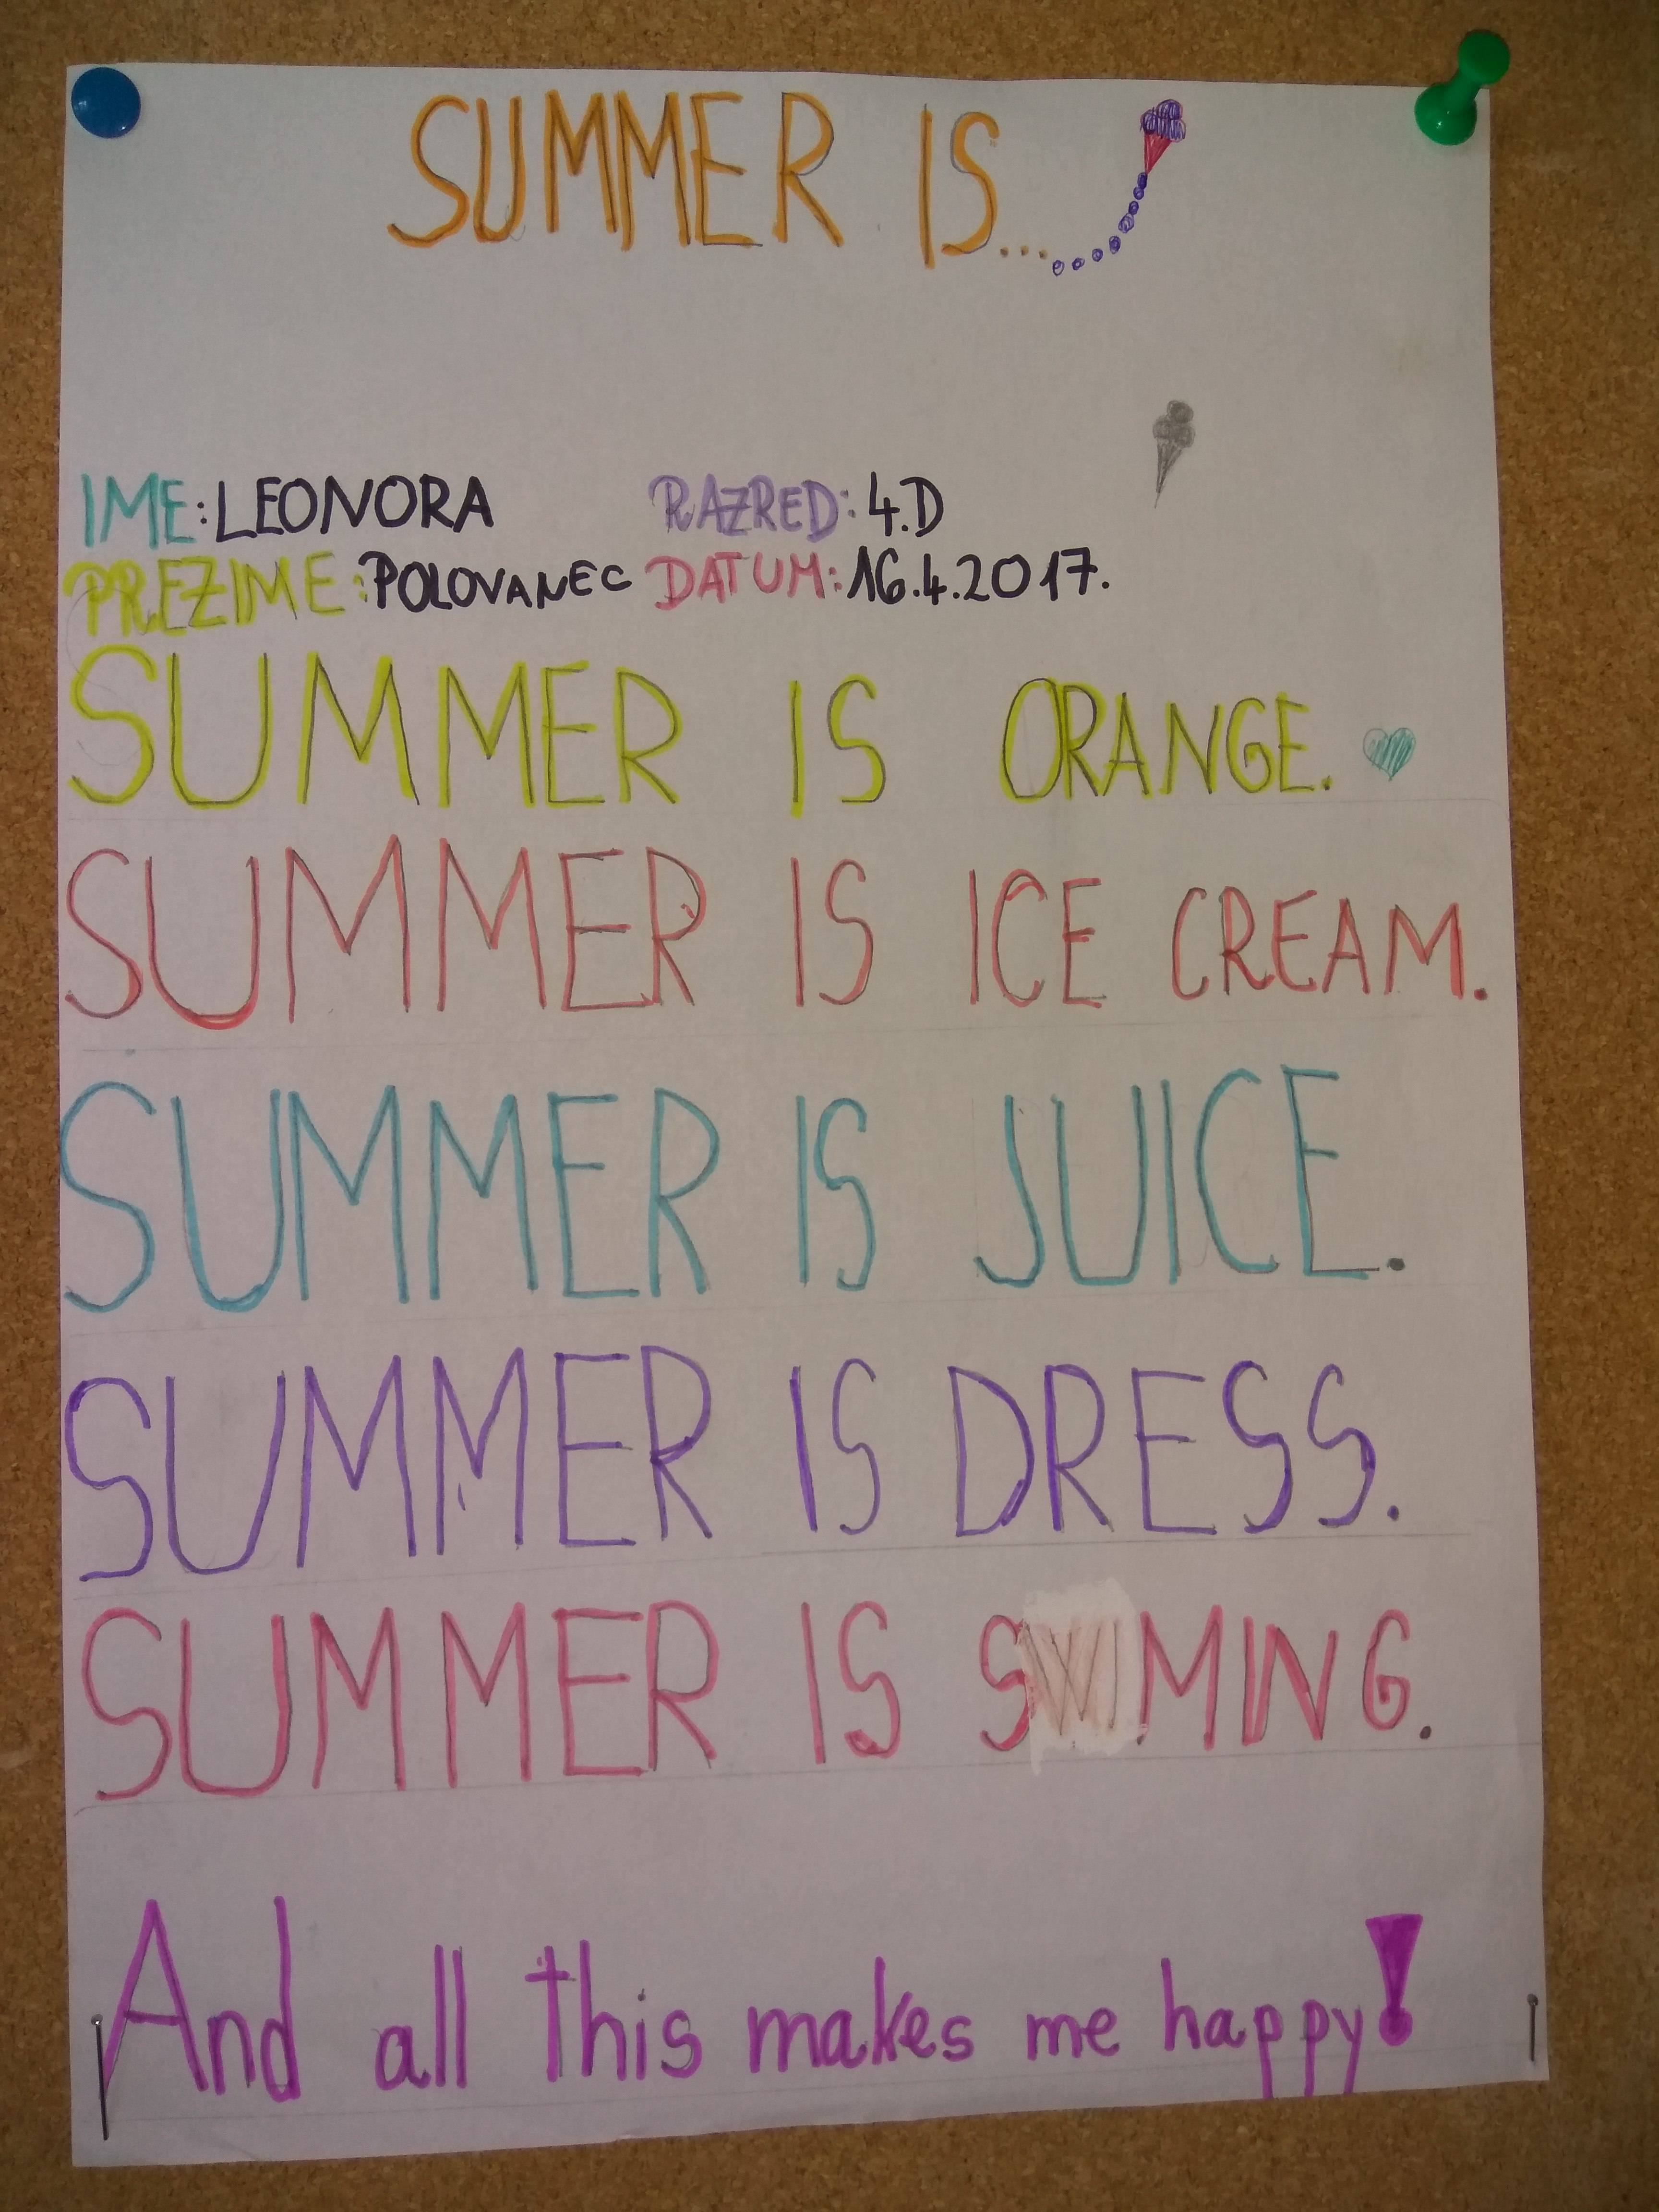 SUMMER IS...
IME: LEONORA RAZRED: 4.D
PREZIME: POLOVANEC DATUM: 16.4.2017.
SUMMER IS ORANGE.
SUMMER IS ICE CREAM.
SUMMER IS JUICE.
SUMMER IS DRESS.
SUMMER IS SWIMING.
And all this makes me happy!